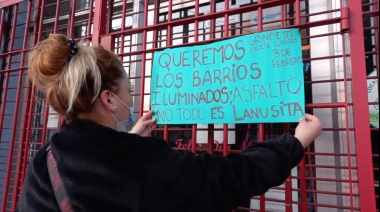 QUEREMOS
LOS BARRIOS
ILUMINADOS; ASFALTO
NO TODO ES LANUSITA
GRINDETTI
3 DE
FEBRERO